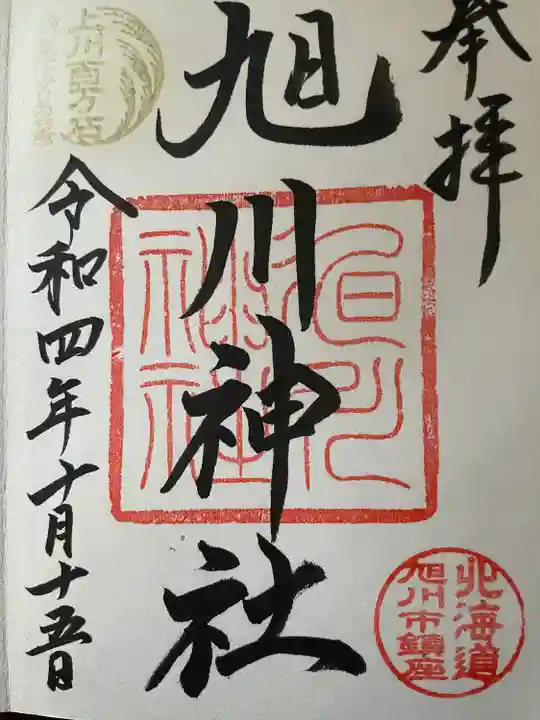 奉拝
旭川神社
旭川神社
北海道
旭川市鎮座
令和四年十月十五日